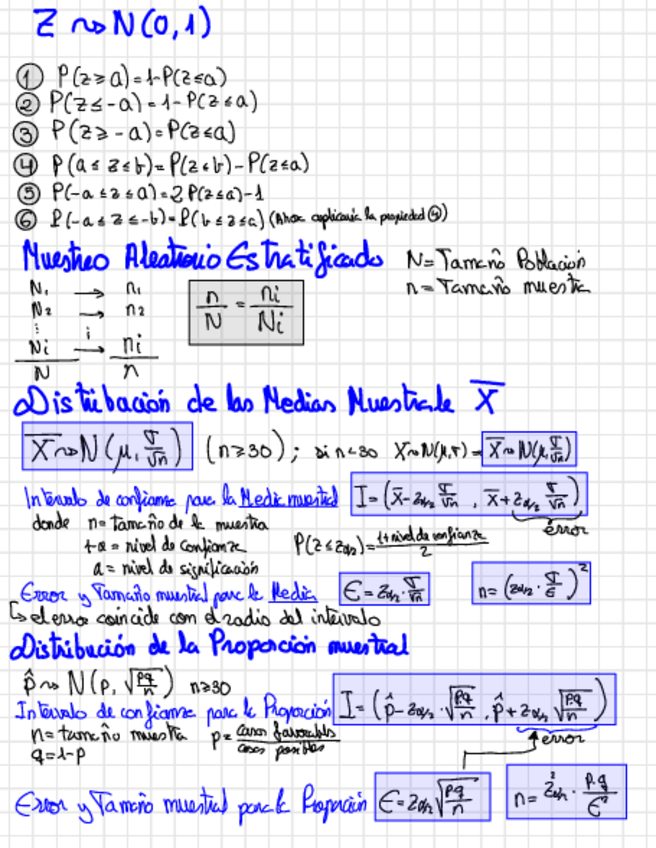 Z ~> N(0,1)
① P(z ≥ a) = 1-P(z ≤ a)
② P(z ≤ -a) = 1-P(z ≤ a)
③ P(z ≥ -a) = P(z ≤ a)
④ P(a ≤ z ≤ b) = P(z ≤ b) - P(z ≤ a)
⑤ P(-a ≤ z ≤ a) = 2 P(z ≤ a) - 1
⑥ P(-a ≤ z ≤ -b) = P(b ≤ z ≤ a) (Ahora aplicaría la propiedad ④)
Muestreo Aleatorio Estratificado
N = Tamaño Población
n = Tamaño muestra
N₁ → n₁
N₂ → n₂
⋮
Ni → i ni
N n
n/N = ni/Ni
Distribución de las Medias Muestrale X̄
X̄ ~> N(μ, σ/√n) (n ≥ 30) ; si n < 30 X ~> N(μ, σ) → X̄ ~> N(μ, σ/√n)
Intervalo de confianza para la Media muestral I = (x̄ - zα/2 σ/√n , x̄ + zα/2 σ/√n)
error
donde n = tamaño de la muestra
1-α = nivel de confianza
α = nivel de significación
P(z ≤ zα/2) = 1+nivel de confianza/2
Error y Tamaño muestral para la Media E = zα/2 · σ/√n n = (zα/2 · σ/E)²
↳ el error coincide con el radio del intervalo
Distribución de la Proporción muestral
p̂ ~> N(p, √pq/n) n ≥ 30
Intervalo de confianza para la Proporción I = (p̂ - zα/2 · √pq/n , p̂ + zα/2 √pq/n)
error
n = tamaño muestra p = casos favorables/casos posibles
q = 1-p
Error y Tamaño muestral para la Proporción E = zα/2 √pq/n n = z²α/2 · p·q/E²